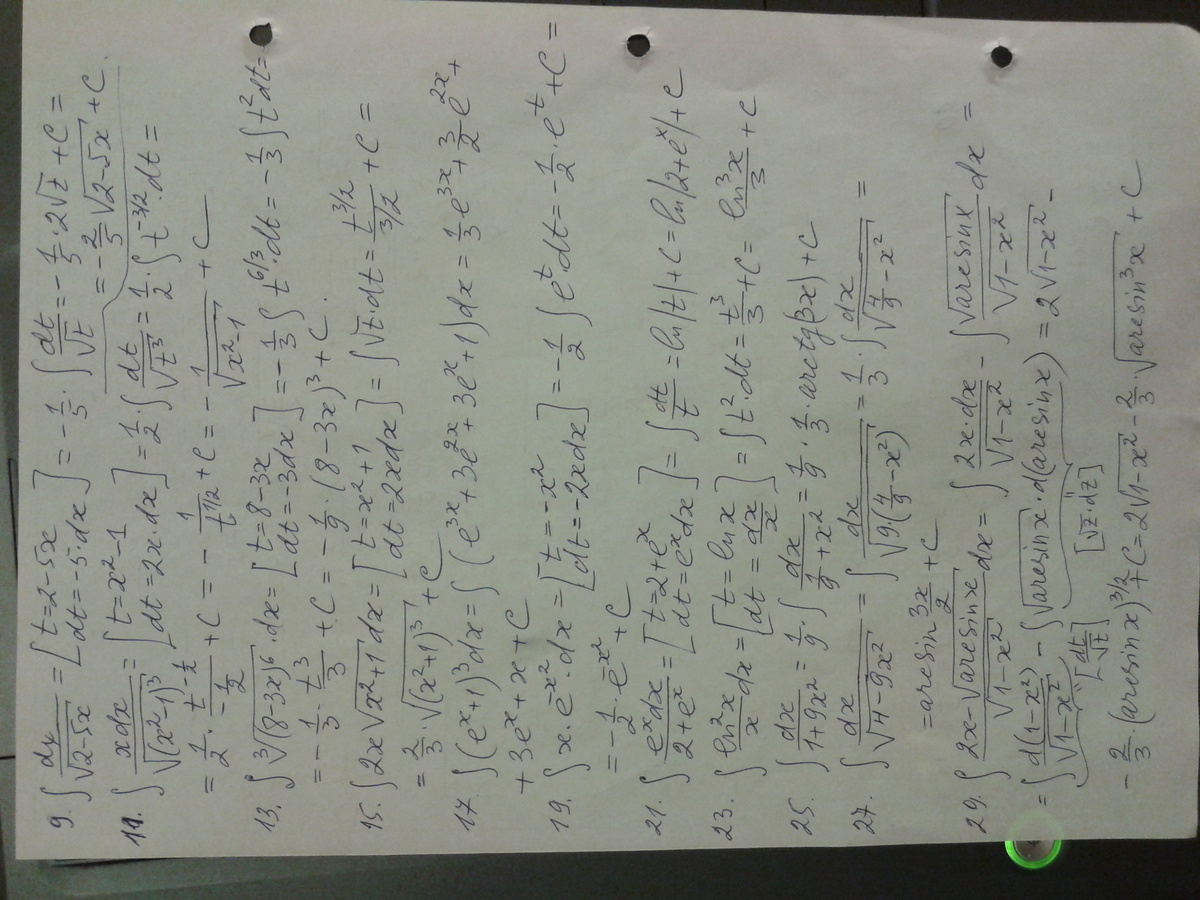 9. ∫ dx/√(2-5x) = [t=2-5x; dt=-5·dx] = -1/5 · ∫ dt/√t = -1/5 · 2√t + C =
= -2/5 √(2-5x) + C.
11. ∫ xdx/√((x²-1)³) = [t=x²-1; dt=2x·dx] = 1/2 · ∫ dt/√(t³) = 1/2 · ∫ t^(-3/2) · dt =
= 1/2 · t^(-1/2)/(-1/2) + C = - 1/t^(1/2) + C = - 1/√(x²-1) + C
13. ∫ ∛((8-3x)⁶) · dx = [t=8-3x; dt=-3dx] = -1/3 ∫ t^(6/3) · dt = -1/3 ∫ t² dt =
= -1/3 · t³/3 + C = -1/9 · (8-3x)³ + C.
15. ∫ 2x√(x²+1) dx = [t=x²+1; dt=2xdx] = ∫ √t · dt = t^(3/2)/(3/2) + C =
= 2/3 · √((x²+1)³) + C
17. ∫ (eˣ+1)³ dx = ∫ (e^(3x) + 3e^(2x) + 3eˣ + 1) dx = 1/3 e^(3x) + 3/2 e^(2x) +
+ 3eˣ + x + C
19. ∫ x · e^(-x²) · dx = [t=-x²; dt=-2xdx] = -1/2 ∫ e^t · dt = -1/2 · e^t + C =
= -1/2 · e^(-x²) + C
21. ∫ eˣdx/(2+eˣ) = [t=2+eˣ; dt=eˣdx] = ∫ dt/t = ln|t| + C = ln|2+eˣ| + C
23. ∫ ln²x/x dx = [t=ln x; dt=dx/x] = ∫ t² · dt = t³/3 + C = ln³x/3 + C
25. ∫ dx/(1+9x²) = 1/9 · ∫ dx/(1/9+x²) = 1/9 · 1/(1/3) · arctg(3x) + C
27. ∫ dx/√(4-9x²) = ∫ dx/√(9·(4/9-x²)) = 1/3 · ∫ dx/√(4/9-x²) =
= arcsin 3x/2 + C
29. ∫ (2x-√(arcsin x))/√(1-x²) dx = ∫ 2x·dx/√(1-x²) - ∫ √(arcsin x)/√(1-x²) dx =
= ∫ d(1-x²)/√(1-x²) - ∫ √(arcsin x) · d(arcsin x) = 2√(1-x²) -
"[dt/√t]" "[√z·dz]"
- 2/3 · (arcsin x)^(3/2) + C = 2√(1-x²) - 2/3 · √(arcsin³x) + C